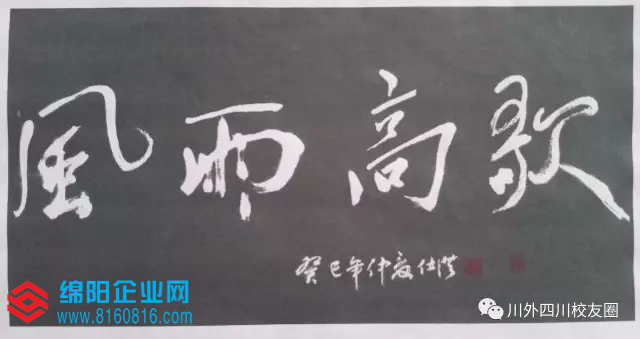 風雨高歌
癸巳年仲夏仕洪
绵阳企业网
www.8160816.com
川外四川校友圈